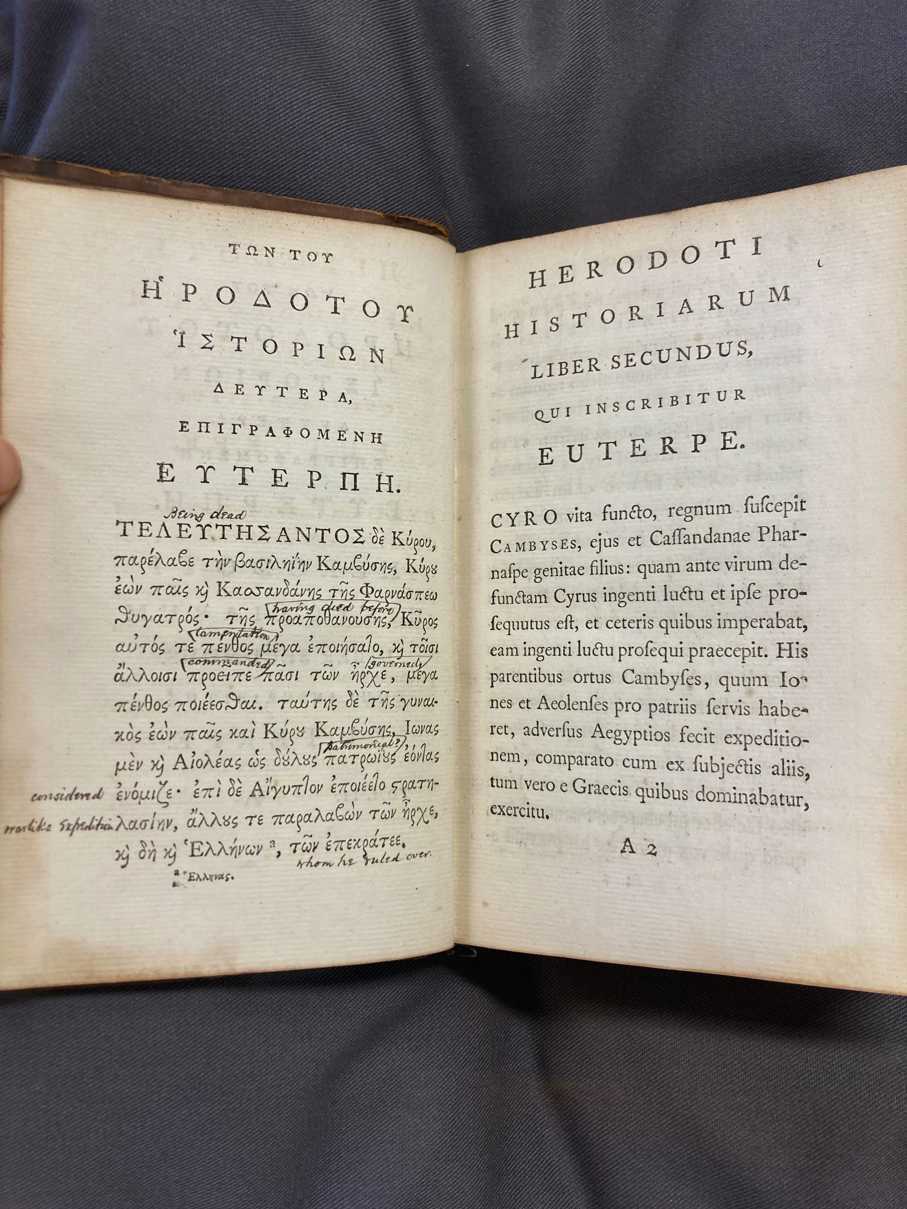 ΤΩΝ ΤΟΥ
ἩΡΟΔΟΤΟΥ
ἹΣΤΟΡΙΩΝ
ΔΕΥΤΕΡΑ,
ΕΠΙΓΡΑΦΟΜΕΝΗ
ΕΥΤΕΡΠΗ.
Being dead
ΤΕΛΕΥΤΗΣΑΝΤΟΣ δὲ Κύρου,
παρέλαβε τὴν βασιληΐην Καμβύσης, Κύρȣ
ἐὼν παῖς κỳ Κασσανδάνης τῆς Φαρνάσπεω
having died before
θυγατρός· τῆς προαποθανούσης, Κῦρος
lamentation
αὐτός τε πένθος μέγα ἐποιήσαlο, κỳ τοῖσι
commanded governed
ἄλλοισι προεῖπε πᾶσι τῶν ἦρχε, μέγα
πένθος ποιέεσθαι. ταύτης δὲ τῆς γυναι-
κὸς ἐὼν παῖς καὶ Κύρȣ Καμβύσης, Ἴωνας
patrimonial
μὲν κỳ Αἰολέας ὡς δȣ́λȣς πατρωΐȣς ἐόνlας
considered ἐνόμιζε· ἐπὶ δὲ Αἴγυπlον ἐποιέεlο ϛρατη-
warlike Expedition λασίην, ἄλλȣς τε παραλαβὼν τῶν ἦρχε,
κỳ δὴ κỳ Ἑλλήνων ª, τῶν ἐπεκράτεε.
whom he ruled over.
ª Ἕλληνας.
HERODOTI
HISTORIARUM
LIBER SECUNDUS,
QUI INSCRIBITUR
EUTERPE.
CYRO vita functo, regnum ſuſcepit
CAMBYSES, ejus et Caſſandanae Phar-
naſpe genitae filius: quam ante virum de-
functam Cyrus ingenti luctu et ipſe pro-
ſequutus eſt, et ceteris quibus imperabat,
eam ingenti luctu proſequi praecepit. His
parentibus ortus Cambyſes, quum Io-
nes et Aeolenſes pro patriis ſervis habe-
ret, adverſus Aegyptios fecit expeditio-
nem, comparato cum ex ſubjectis aliis,
tum vero e Graecis quibus dominabatur,
exercitu.
A 2